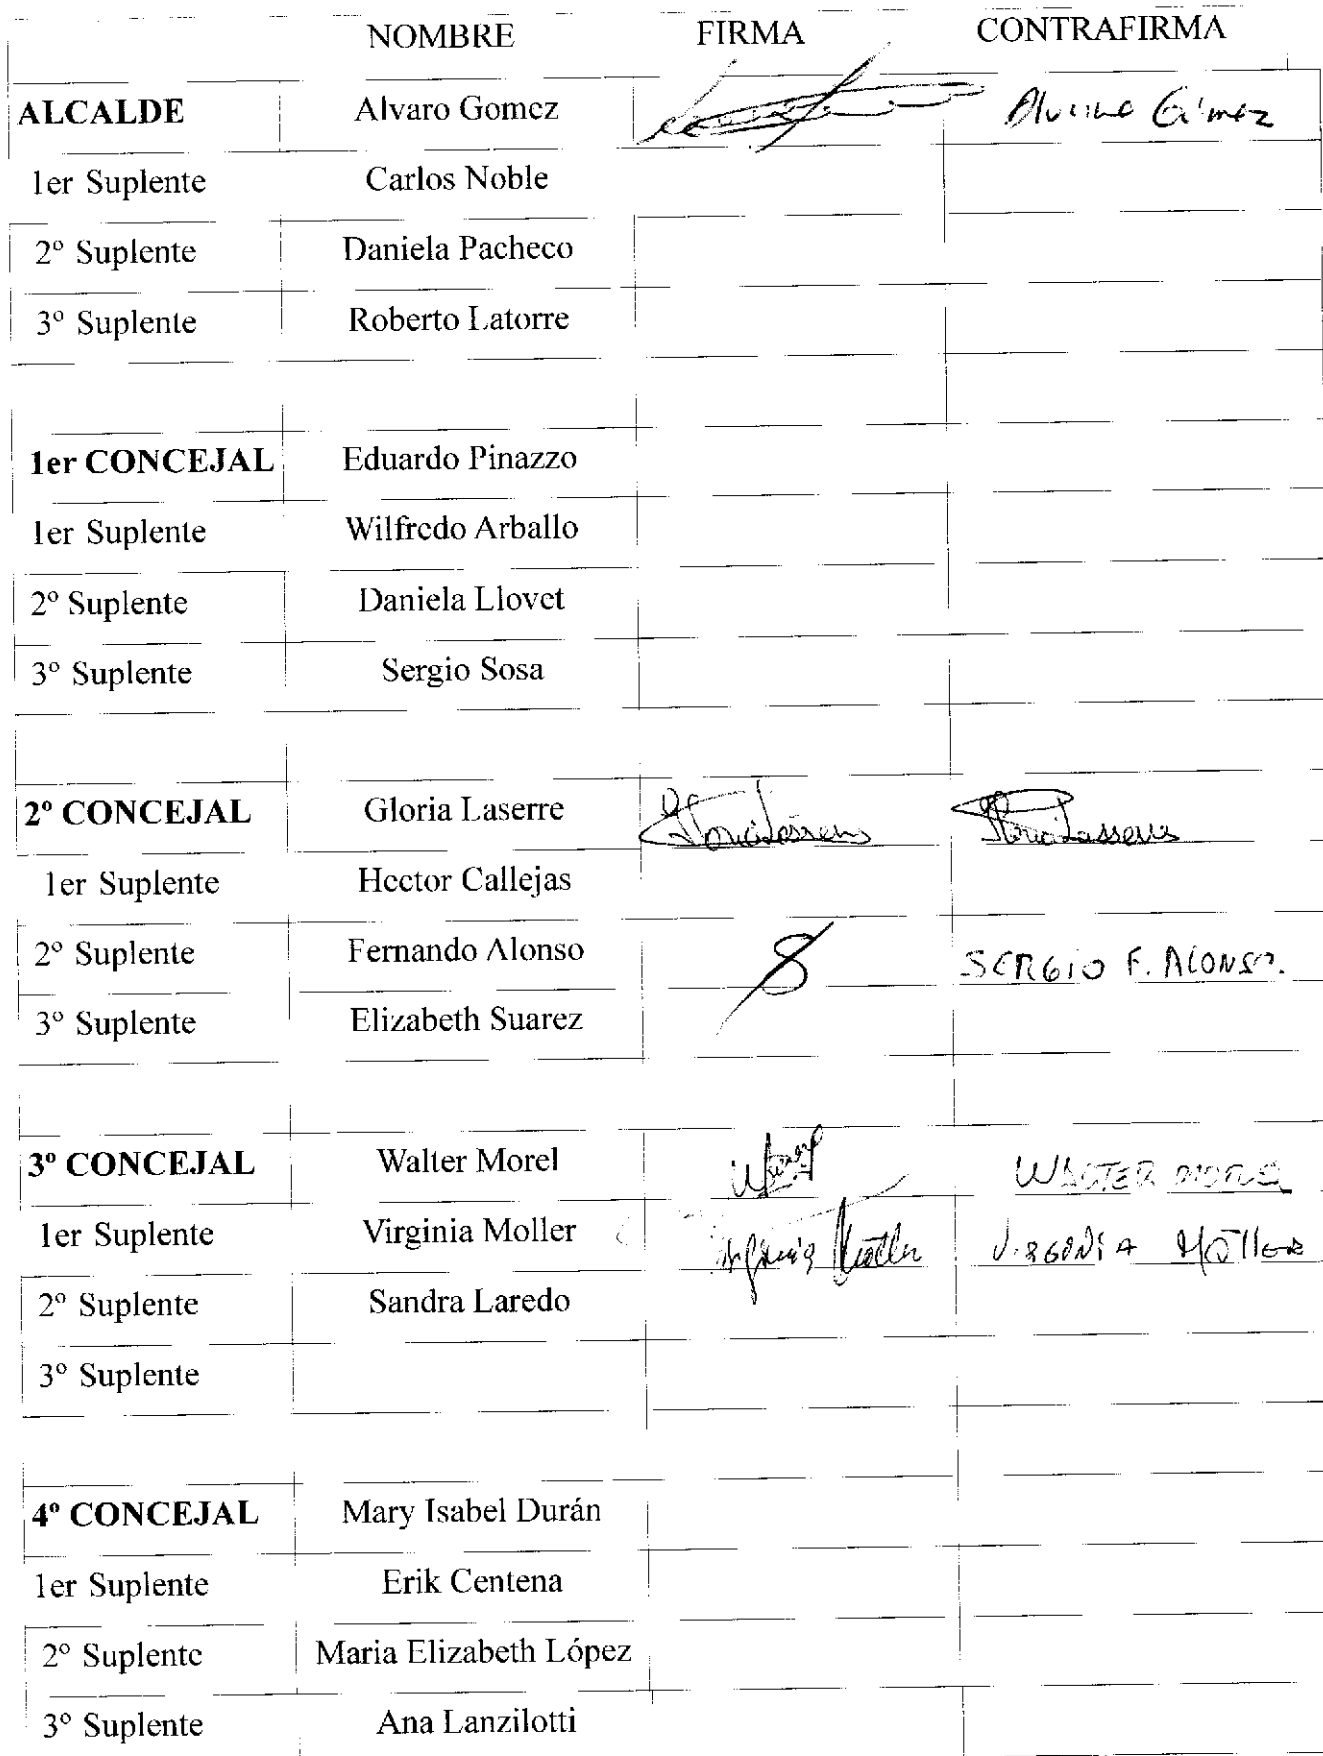 NOMBRE FIRMA CONTRAFIRMA
ALCALDE Alvaro Gomez Alvaro Gómez
1er Suplente Carlos Noble
2º Suplente Daniela Pacheco
3º Suplente Roberto Latorre
1er CONCEJAL Eduardo Pinazzo
1er Suplente Wilfredo Arballo
2º Suplente Daniela Llovet
3º Suplente Sergio Sosa
2º CONCEJAL Gloria Laserre
1er Suplente Hector Callejas
2º Suplente Fernando Alonso SERGIO F. ALONSO.
3º Suplente Elizabeth Suarez
3º CONCEJAL Walter Morel WALTER MOREL
1er Suplente Virginia Moller Virginia Möller VIRGINIA MÖLLER
2º Suplente Sandra Laredo
3º Suplente
4º CONCEJAL Mary Isabel Durán
1er Suplente Erik Centena
2º Suplente Maria Elizabeth López
3º Suplente Ana Lanzilotti